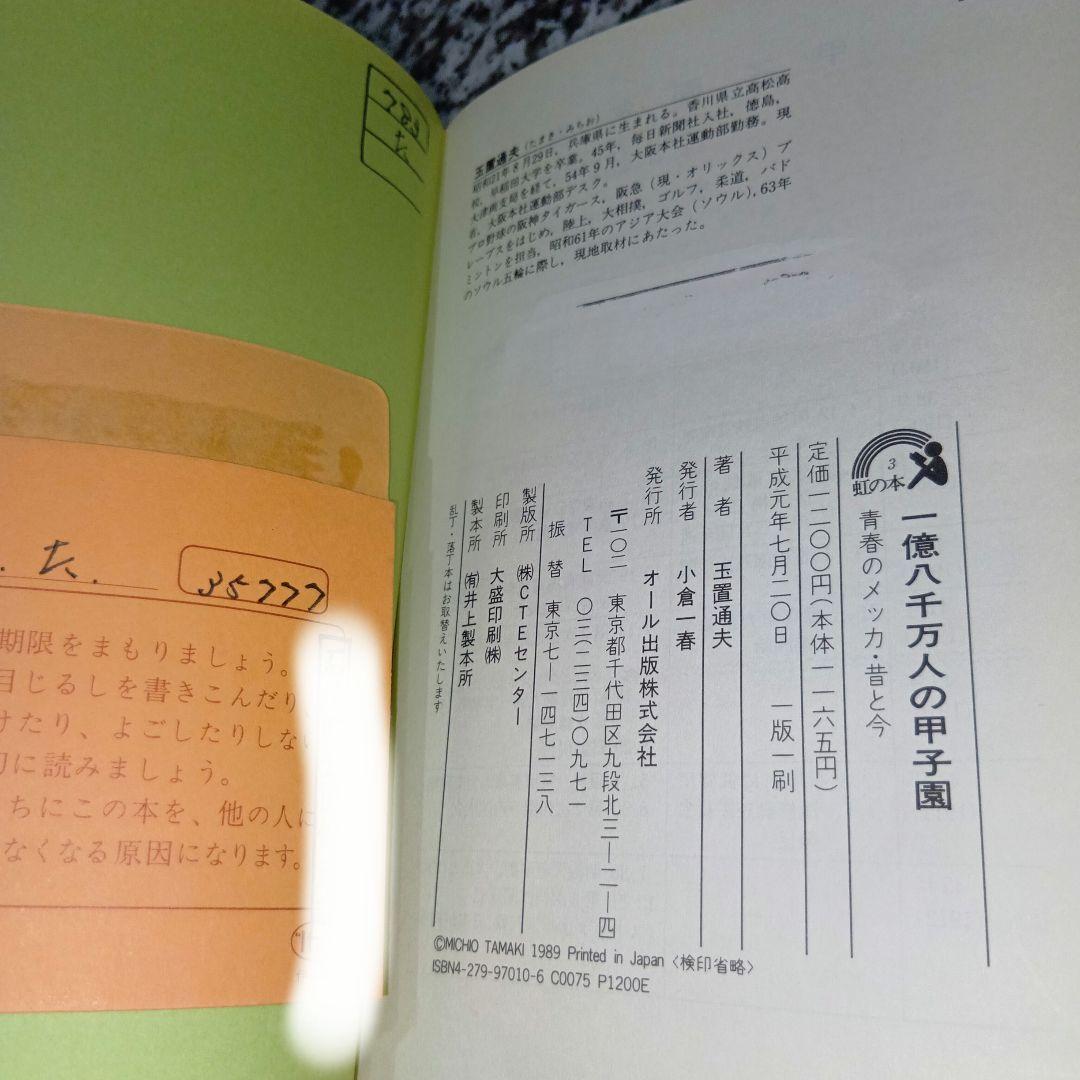 783
た
た.
35777
期限をまもりましょう。
目じるしを書きこんだり
けたり、よごしたりしない
切に読みましょう。
ちにこの本を、他の人に
なくなる原因になります。
玉置通夫(たまき・みちお)
昭和21年8月29日, 兵庫県に生まれる。香川県立高松高
校, 早稲田大学を卒業。45年, 毎日新聞社入社, 徳島,
大津両支局を経て, 54年9月, 大阪本社運動部勤務。現
在, 大阪本社運動部デスク。
プロ野球の阪神タイガース, 阪急(現・オリックス)ブ
レーブスをはじめ, 陸上, 大相撲, ゴルフ, 柔道, バド
ミントンを担当, 昭和61年のアジア大会(ソウル), 63年
のソウル五輪に際し, 現地取材にあたった。
3
虹の本
一億八千万人の甲子園
青春のメッカ・昔と今
定価一二〇〇円(本体一一六五円)
平成元年七月二〇日 一版一刷
著者 玉置通夫
発行者 小倉一春
発行所 オール出版株式会社
〒一〇二 東京都千代田区九段北三―二―四
TEL 〇三(二三四)〇九七一
振替 東京七―一四七一三八
製版所 ㈱CTEセンター
印刷所 大盛印刷㈱
製本所 ㈲井上製本所
乱丁・落丁本はお取替えいたします
©MICHIO TAMAKI 1989 Printed in Japan 〈検印省略〉
ISBN4-279-97010-6 C0075 P1200E